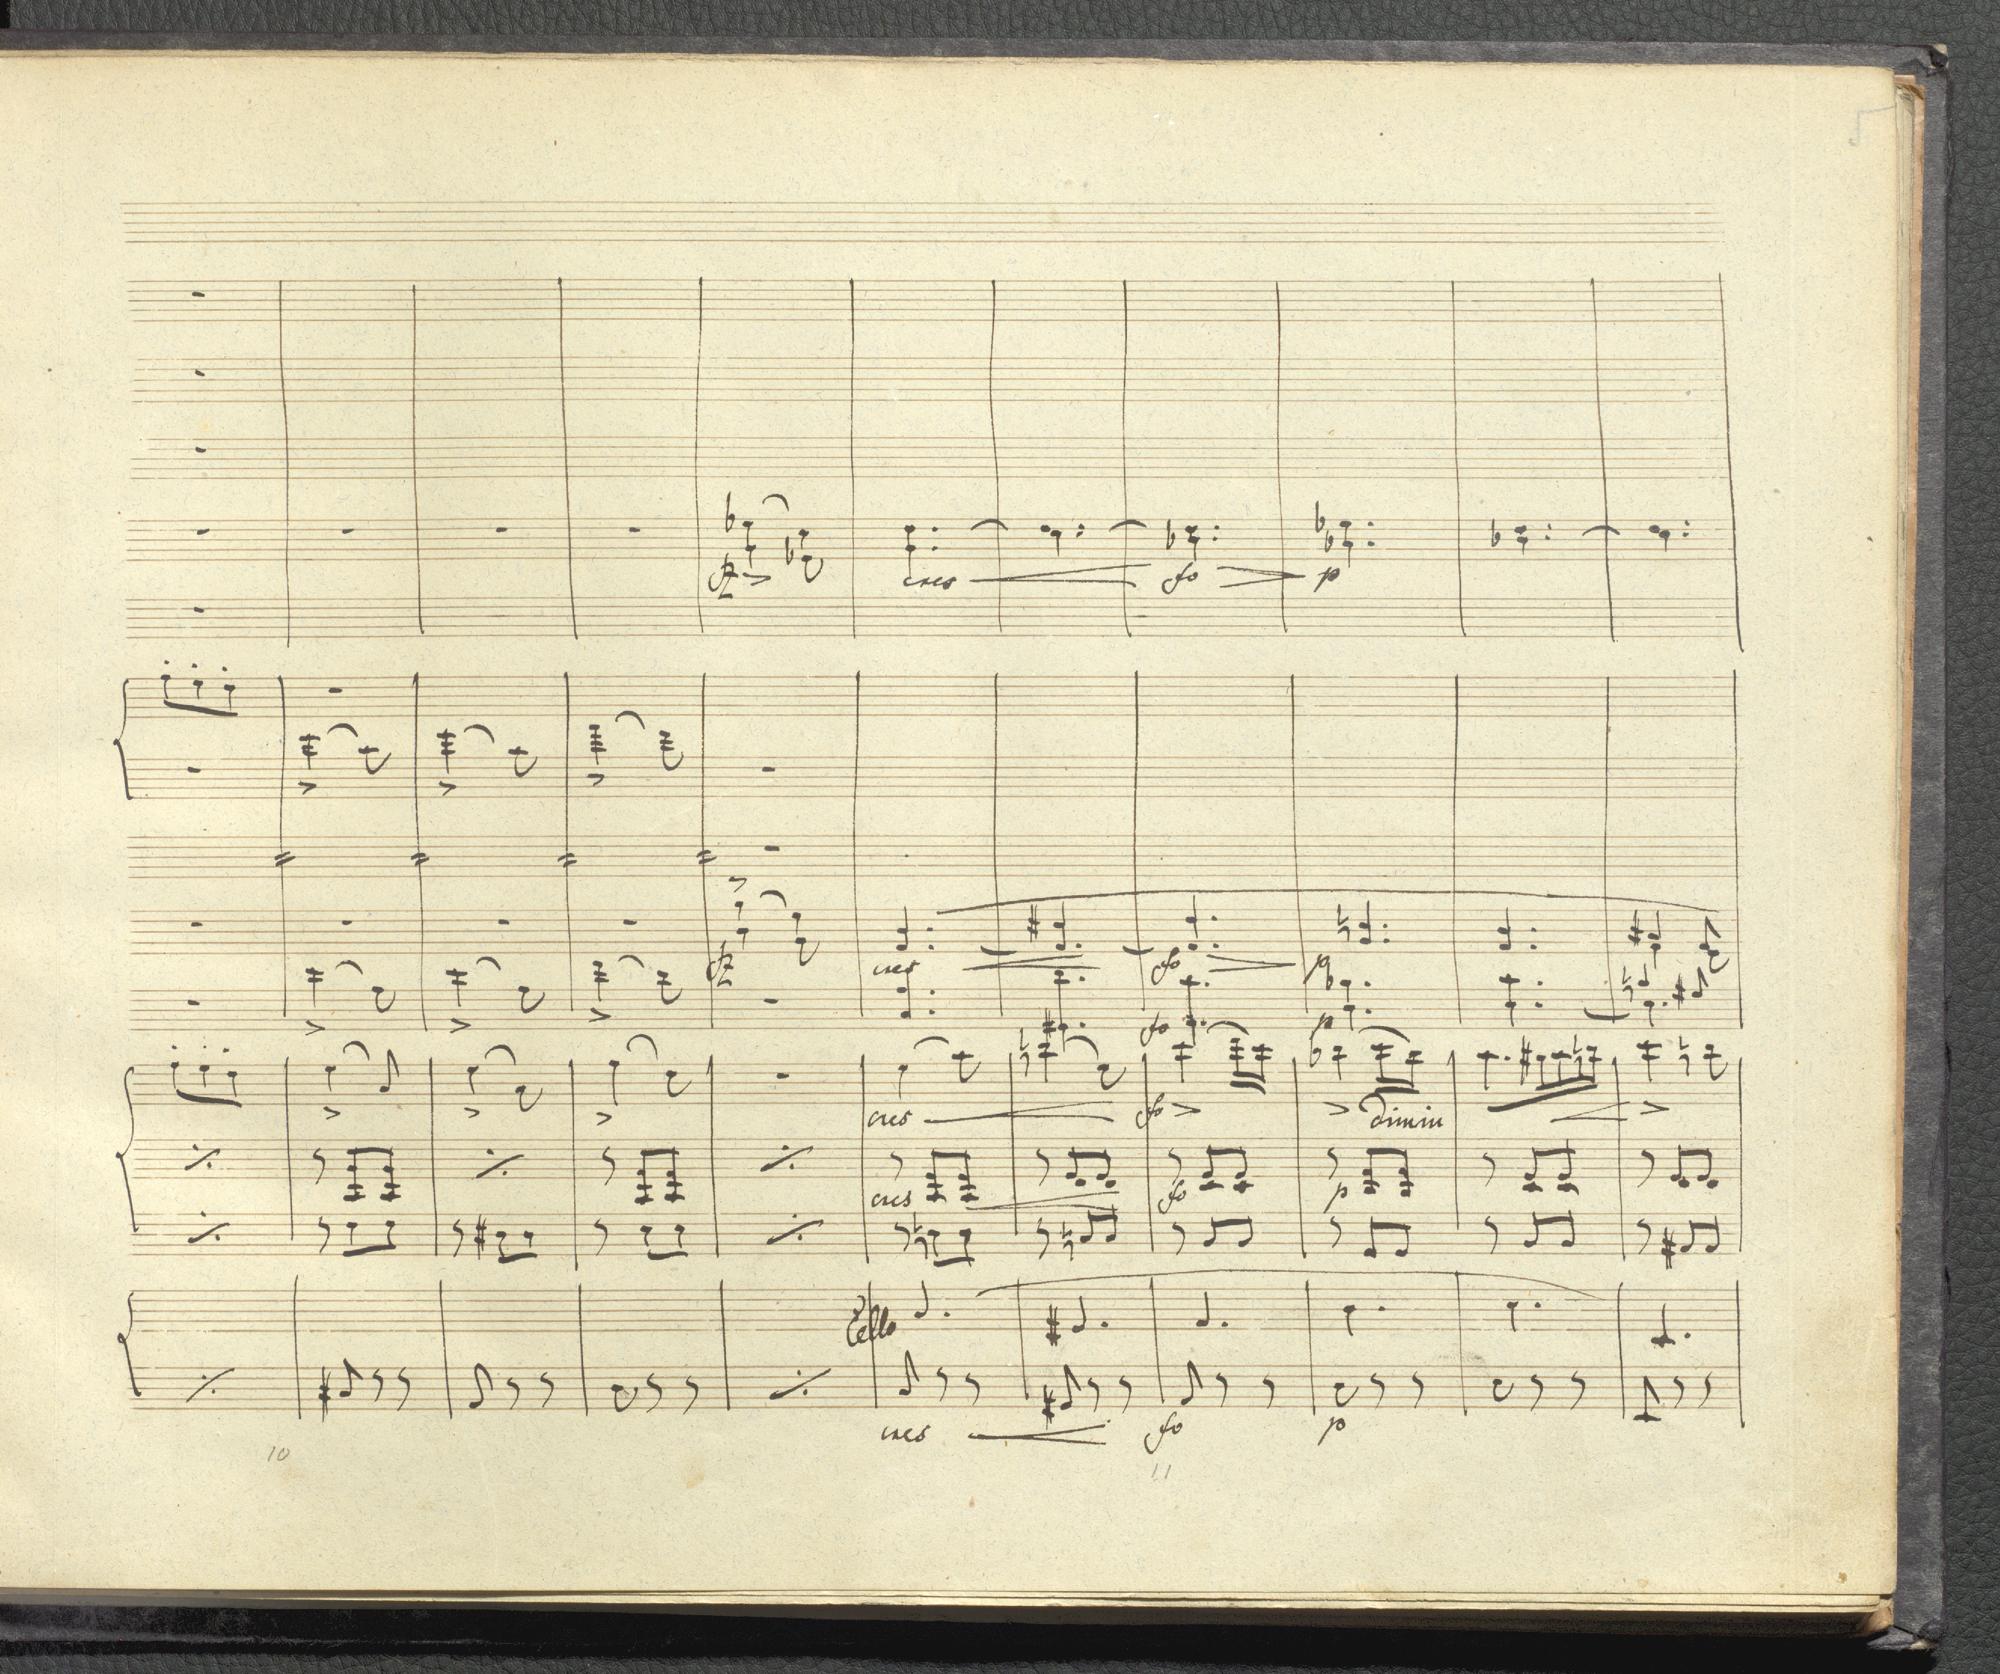 5
fz
cres fo p
fz
cres fo p
fo p
cres fo dimin
cres fo p
Cello
cres fo p
10 11